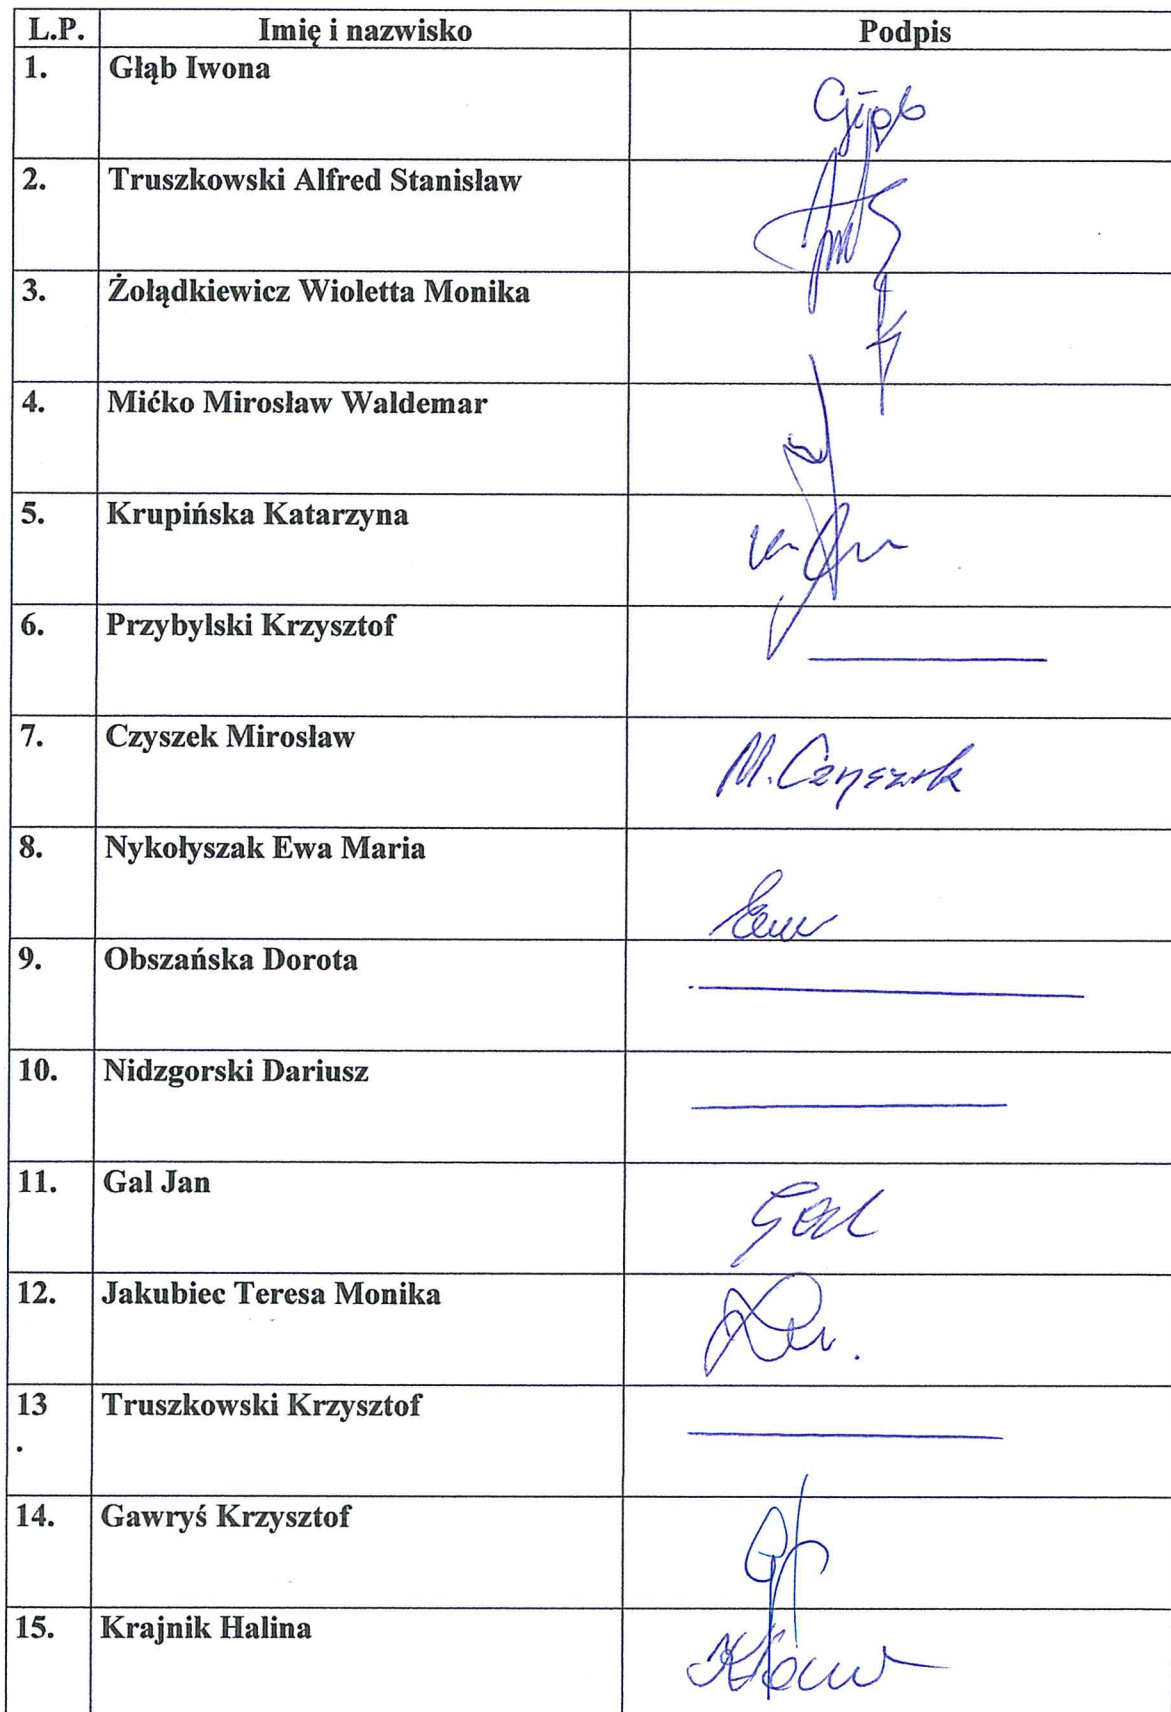 L.P. Imię i nazwisko Podpis
1. Głąb Iwona Głąb
2. Truszkowski Alfred Stanisław
3. Żołądkiewicz Wioletta Monika
4. Mićko Mirosław Waldemar
5. Krupińska Katarzyna
6. Przybylski Krzysztof
7. Czyszek Mirosław M. Czyszek
8. Nykołyszak Ewa Maria
9. Obszańska Dorota
10. Nidzgorski Dariusz
11. Gal Jan Gal
12. Jakubiec Teresa Monika
13
.
Truszkowski Krzysztof
14. Gawryś Krzysztof
15. Krajnik Halina